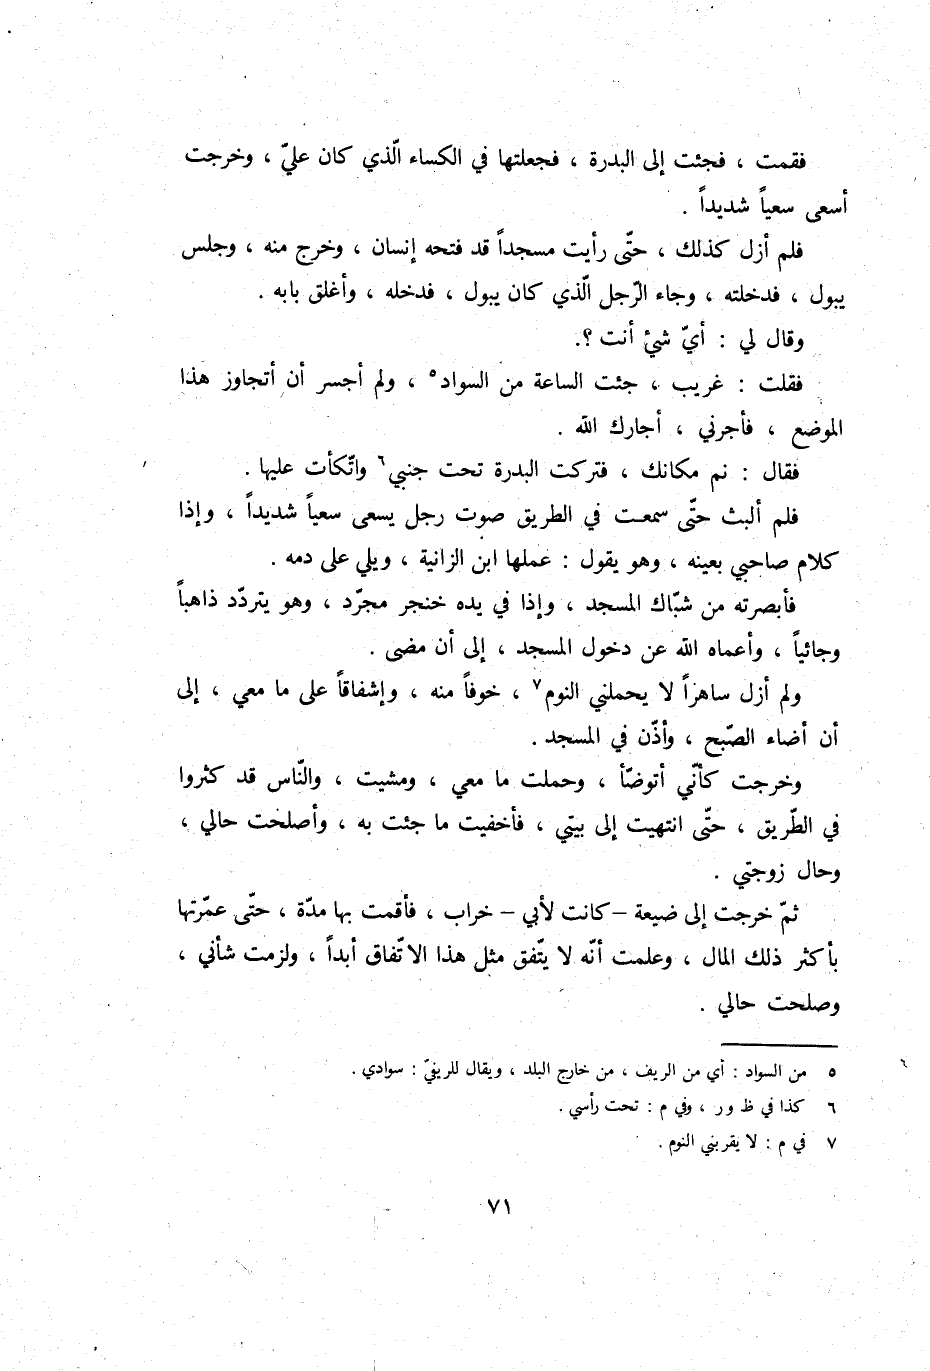 فقمت ، فجئت إلى البدرة ، فجعلتها في الكساء الّذي كان عليّ ، وخرجت
أسعى سعياً شديداً .
فلم أزل كذلك ، حتّى رأيت مسجداً قد فتحه إنسان ، وخرج منه ، وجلس
يبول ، فدخلته ، وجاء الرّجل الّذي كان يبول ، فدخله ، وأغلق بابه .
وقال لي : أيّ شئ أنت ؟.
فقلت : غريب ، جئت الساعة من السواد٥ ، ولم أجسر أن أتجاوز هذا
الموضع ، فأجرني ، أجارك الله .
فقال : نم مكانك ، فتركت البدرة تحت جنبي٦ واتّكأت عليها .
فلم ألبث حتّى سمعت في الطريق صوت رجل يسعى سعياً شديداً ، وإذا
كلام صاحبي بعينه ، وهو يقول : عملها ابن الزانية ، ويلي على دمه .
فأبصرته من شبّاك المسجد ، وإذا في يده خنجر مجرّد ، وهو يتردّد ذاهباً
وجائياً ، وأعماه الله عن دخول المسجد ، إلى أن مضى .
ولم أزل ساهراً لا يحملني النوم٧ ، خوفاً منه ، وإشفاقاً على ما معي ، إلى
أن أضاء الصّبح ، وأذّن في المسجد .
وخرجت كأنّي أتوضّأ ، وحملت ما معي ، ومشيت ، والنّاس قد كثروا
في الطّريق ، حتّى انتهيت إلى بيتي ، فأخفيت ما جئت به ، وأصلحت حالي ،
وحال زوجتي .
ثمّ خرجت إلى ضيعة -كانت لأبي- خراب ، فأقمت بها مدّة ، حتّى عمّرتها
بأكثر ذلك المال ، وعلمت أنّه لا يتّفق مثل هذا الاتّفاق أبداً ، ولزمت شأني ،
وصلحت حالي .
٥ من السواد : أي من الريف ، من خارج البلد ، ويقال للريفيّ : سوادي .
٦ كذا في ظ ور ، وفي م : تحت رأسي .
٧ في م : لا يقربني النوم .
٧١